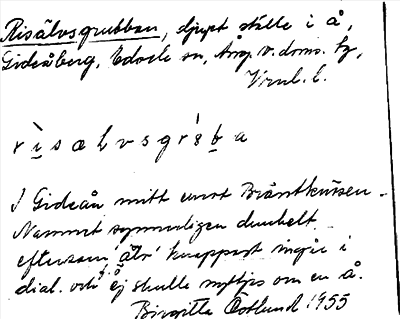 Risälvsgrubban, djupt ställe i å,
Gideåberg, Edsele sn, Ång. v. doms. tg,
Vrnl. l.
r i s æ l v s g r u b a
I Gideån mitt emot Bräntkni
Namnet synnerligen dunkelt
eftersom 'älv' knappast ingår i
dial. och ej skulle nyttjas om en å.
Birgitta Östlund 1955